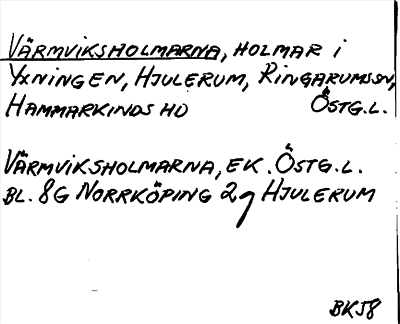 VÄRMVIKSHOLMARNA, HOLMAR i
YXNINGEN, HJULERUM, RINGARUMSSN,
HAMMARKINDS HD ÖSTG.L.
VÄRMVIKSHOLMARNA, EK. ÖSTG.L.
BL. 8G NORRKÖPING 2g HJULERUM
BK58